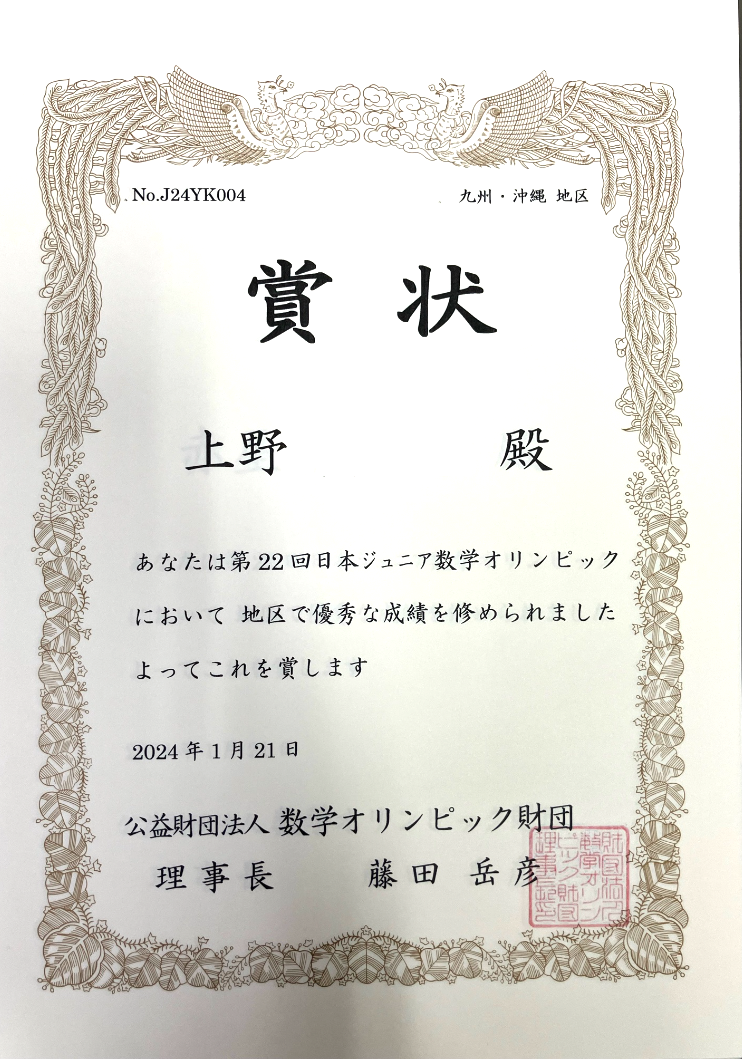 No.J24YK004 九州・沖縄 地区
賞 状
上野 殿
あなたは第22回日本ジュニア数学オリンピック
において 地区で優秀な成績を修められました
よってこれを賞します
2024年1月21日
公益財団法人 数学オリンピック財団
理事長 藤田 岳彦